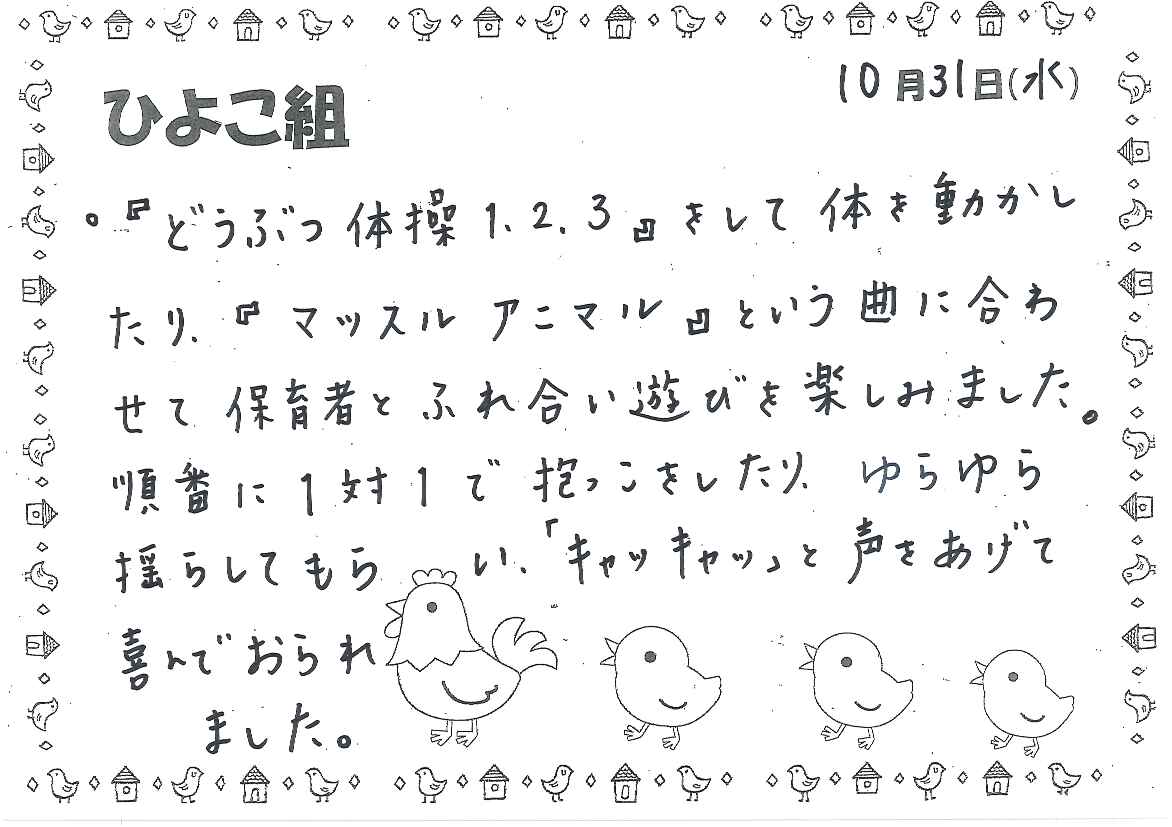 10月31日(水)
ひよこ組
。『どうぶつ体操1.2.3』をして体を動かし
たり、『マッスルアニマル』という曲に合わ
せて保育者とふれ合い遊びを楽しみました。
順番に1対1で抱っこをしたり、ゆらゆら
揺らしてもらい、「キャッキャッ」と声をあげて
喜んでおられ
ました。